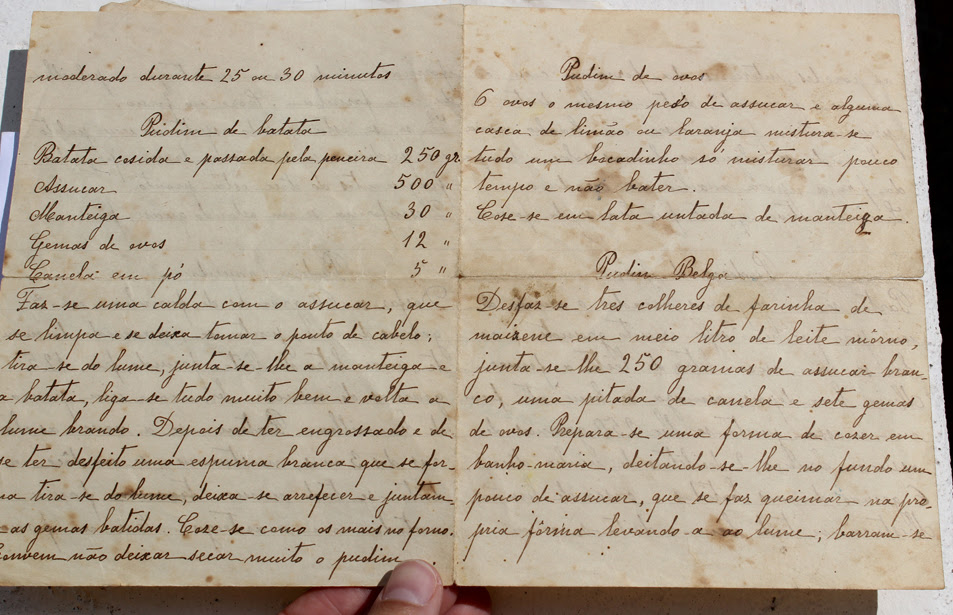 moderado durante 25 ou 30 minutos
Pudim de batata
Batata cosida e passada pela peneira 250 gr.
Assucar 500 "
Manteiga 30 "
Gemas de ovos 12 "
Canela em pó 5 "
Faz-se uma calda com o assucar, que
se limpa e se deixa tomar o ponto de cabelo;
tira-se do lume, junta-se-lhe a manteiga e
a batata, liga-se tudo muito bem e volta a
lume brando. Depois de ter engrossado e de
se ter desfeito uma espuma branca que se for-
ma tira-se do lume, deixa-se arrefecer e juntam
-as gemas batidas. Coze-se como os mais no forno.
Convem não deixar secar muito o pudim.
Pudim de ovos
6 ovos o mesmo peso de assucar e alguma
casca de limão ou laranja mistura-se
tudo um bocadinho so misturar pouco
tempo e não bater.
Coze-se em lata untada de manteiga.
Pudim Belga
Desfaz-se tres colheres de farinha de
maizene em meio litro de leite môrno,
junta-se-lhe 250 gramas de assucar bran-
co, uma pitada de canela e sete gemas
de ovos. Prepara-se uma forma de cozer em
banho-maria, deitando-se-lhe no fundo um
pouco de assucar, que se faz queimar na pro
pria fôrma levando-a ao lume; barram-se